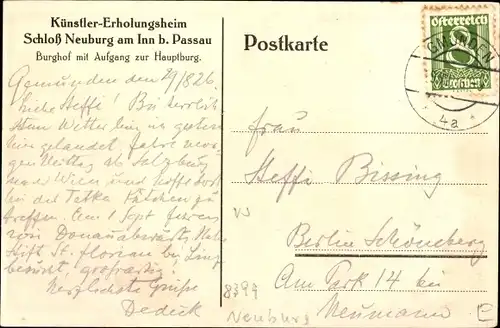 Künstler-Erholungsheim
Schloß Neuburg am Inn b. Passau
Burghof mit Aufgang zur Hauptburg.
Postkarte
Österreich
8
Groschen
GMUNDEN
4a
Gmunden den 29/8 26.
Liebe Steffi! Bei herrlich
stem Wetter bin ich gestern
hier gelandet. Fahre mor-
gen Mittag ab Salzburg
nach Wien und hoffe dort
in der Tetka Kätchen zu
treffen. Am 1 Sept fahren
wir Donauabwärts. Habe
Stift St. Florian bei Linz
besucht, großartig.
Herzlichste Grüße
Dedick
Frau
Steffi Bissing
Berlin Schöneberg
Am Park 14 bei
Neumann
8399
Neuburg